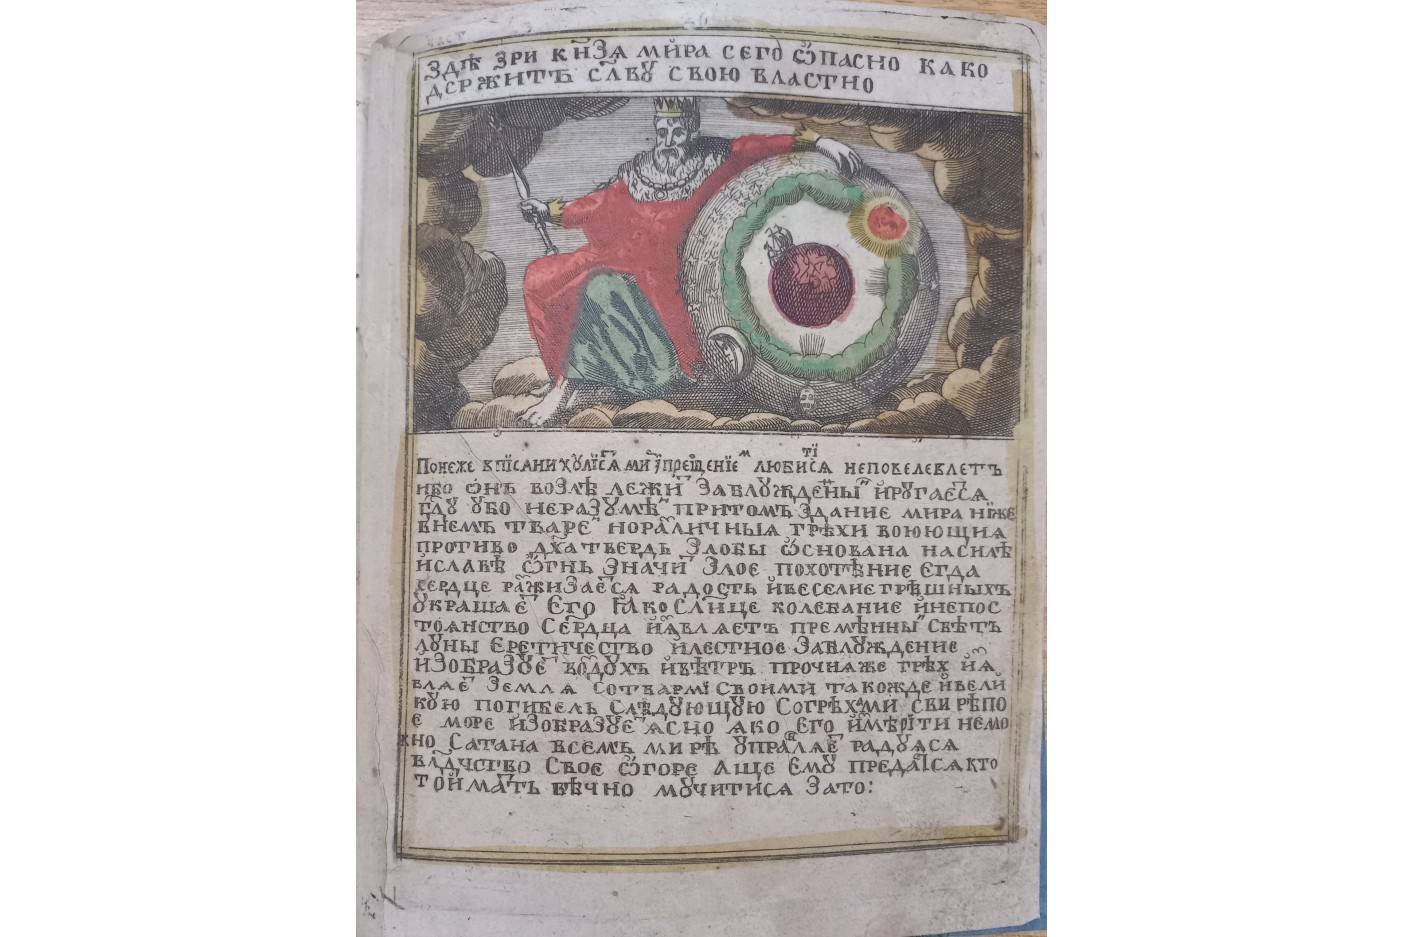 ЗДѢ ЗРИ КН҃ЗѦ МИ́РА СЕГО Ѡ҆ПАСНО КАКО
ДЄРЖИТЪ СЛ҃ВꙊ СВОЮ ВЛАСТНО
ПОНЄЖЕ ВПЇСАНИ ХꙊЛІ́СѦ МИ ПРЕЩЕНЇЕ ЛЮБИ́СѦ НЕПОВЕЛЕВАЕТЪ
ИБО Ѡ҆НЪ ВОЗЛѢ ЛЕЖИ ЗАБЛꙊЖДЕНЫ И҆РꙊГАЕСѦ
ГЛ҃Ꙋ ꙊБО НЕРАЗꙊМѢ ПРИТОМЪ ЗДАНИЕ МИРА НИ́ЖЕ
ВНЕМЪ ТВАРЕ НОРАЛИЧНЫѦ ГРѢХИ ВОЮЮЩИѦ
ПРОТИВО ДХ҃А ТВЕРДЬ ЗЛОБЫ Ѡ҆СНОВАНА НАСИЛѢ
И҆СЛАВѢ Ѡ҆ГНЬ ЗНАЧИ ЗЛОЕ ПОХОТѢНИЕ ЕГДА
СЕРДЦЕ РАЖИЗАЕСѦ РАДОСТЬ И҆ВЕСЕЛИЕ ГРѢШНЫХЪ
ꙊКРАШАЕ ЕГО ꙖКО СЛН҃ЦЕ КОЛЕБАНИЕ И҆НЕПОС
ТОѦНСТВО СЕРДЦА И҆ѦВЛѦЕТЪ ПРЕМѢННЫ СВѢТЪ
ЛꙊНЫ ЕРЕТИЧЕСТВО И҆ЛЕСТНОЕ ЗАБЛꙊЖДЕНИЕ
ИЗОБРАЗꙊЕ ВОЗДꙊХЪ И҆ВѢТРЪ ПРОЧИѦЖЕ ГРѢХ И҆Ѧ
ВЛѦЕ ЗЕМЛѦ СОТВАРМІ СВОИМИ ТАКОЖДЕ И҆ВЕЛИ́
КꙊЮ ПОГИБЕЛЬ СЛѢДꙊЮЩꙊЮ СОГРѢХАМИ СВИРѢПО
Е МОРЕ ИЗОБРАЗꙊЕ ѦСНО ѦКО ЕГО И҆МѢРІТИ НЕМО
ЖНО САТАНА ВСЕМЪ МИРѢ ꙊПРАВЛѦЕ РАДꙊѦСѦ
ВЛДЧ҃СТВО СВОЕ Ѡ҆ГОРЕ АЩЕ ЕМꙊ ПРЕДАІСѦ КТО
ТОИ́ МАТЬ ВѢЧНО МꙊЧИТИСѦ ЗАТО: